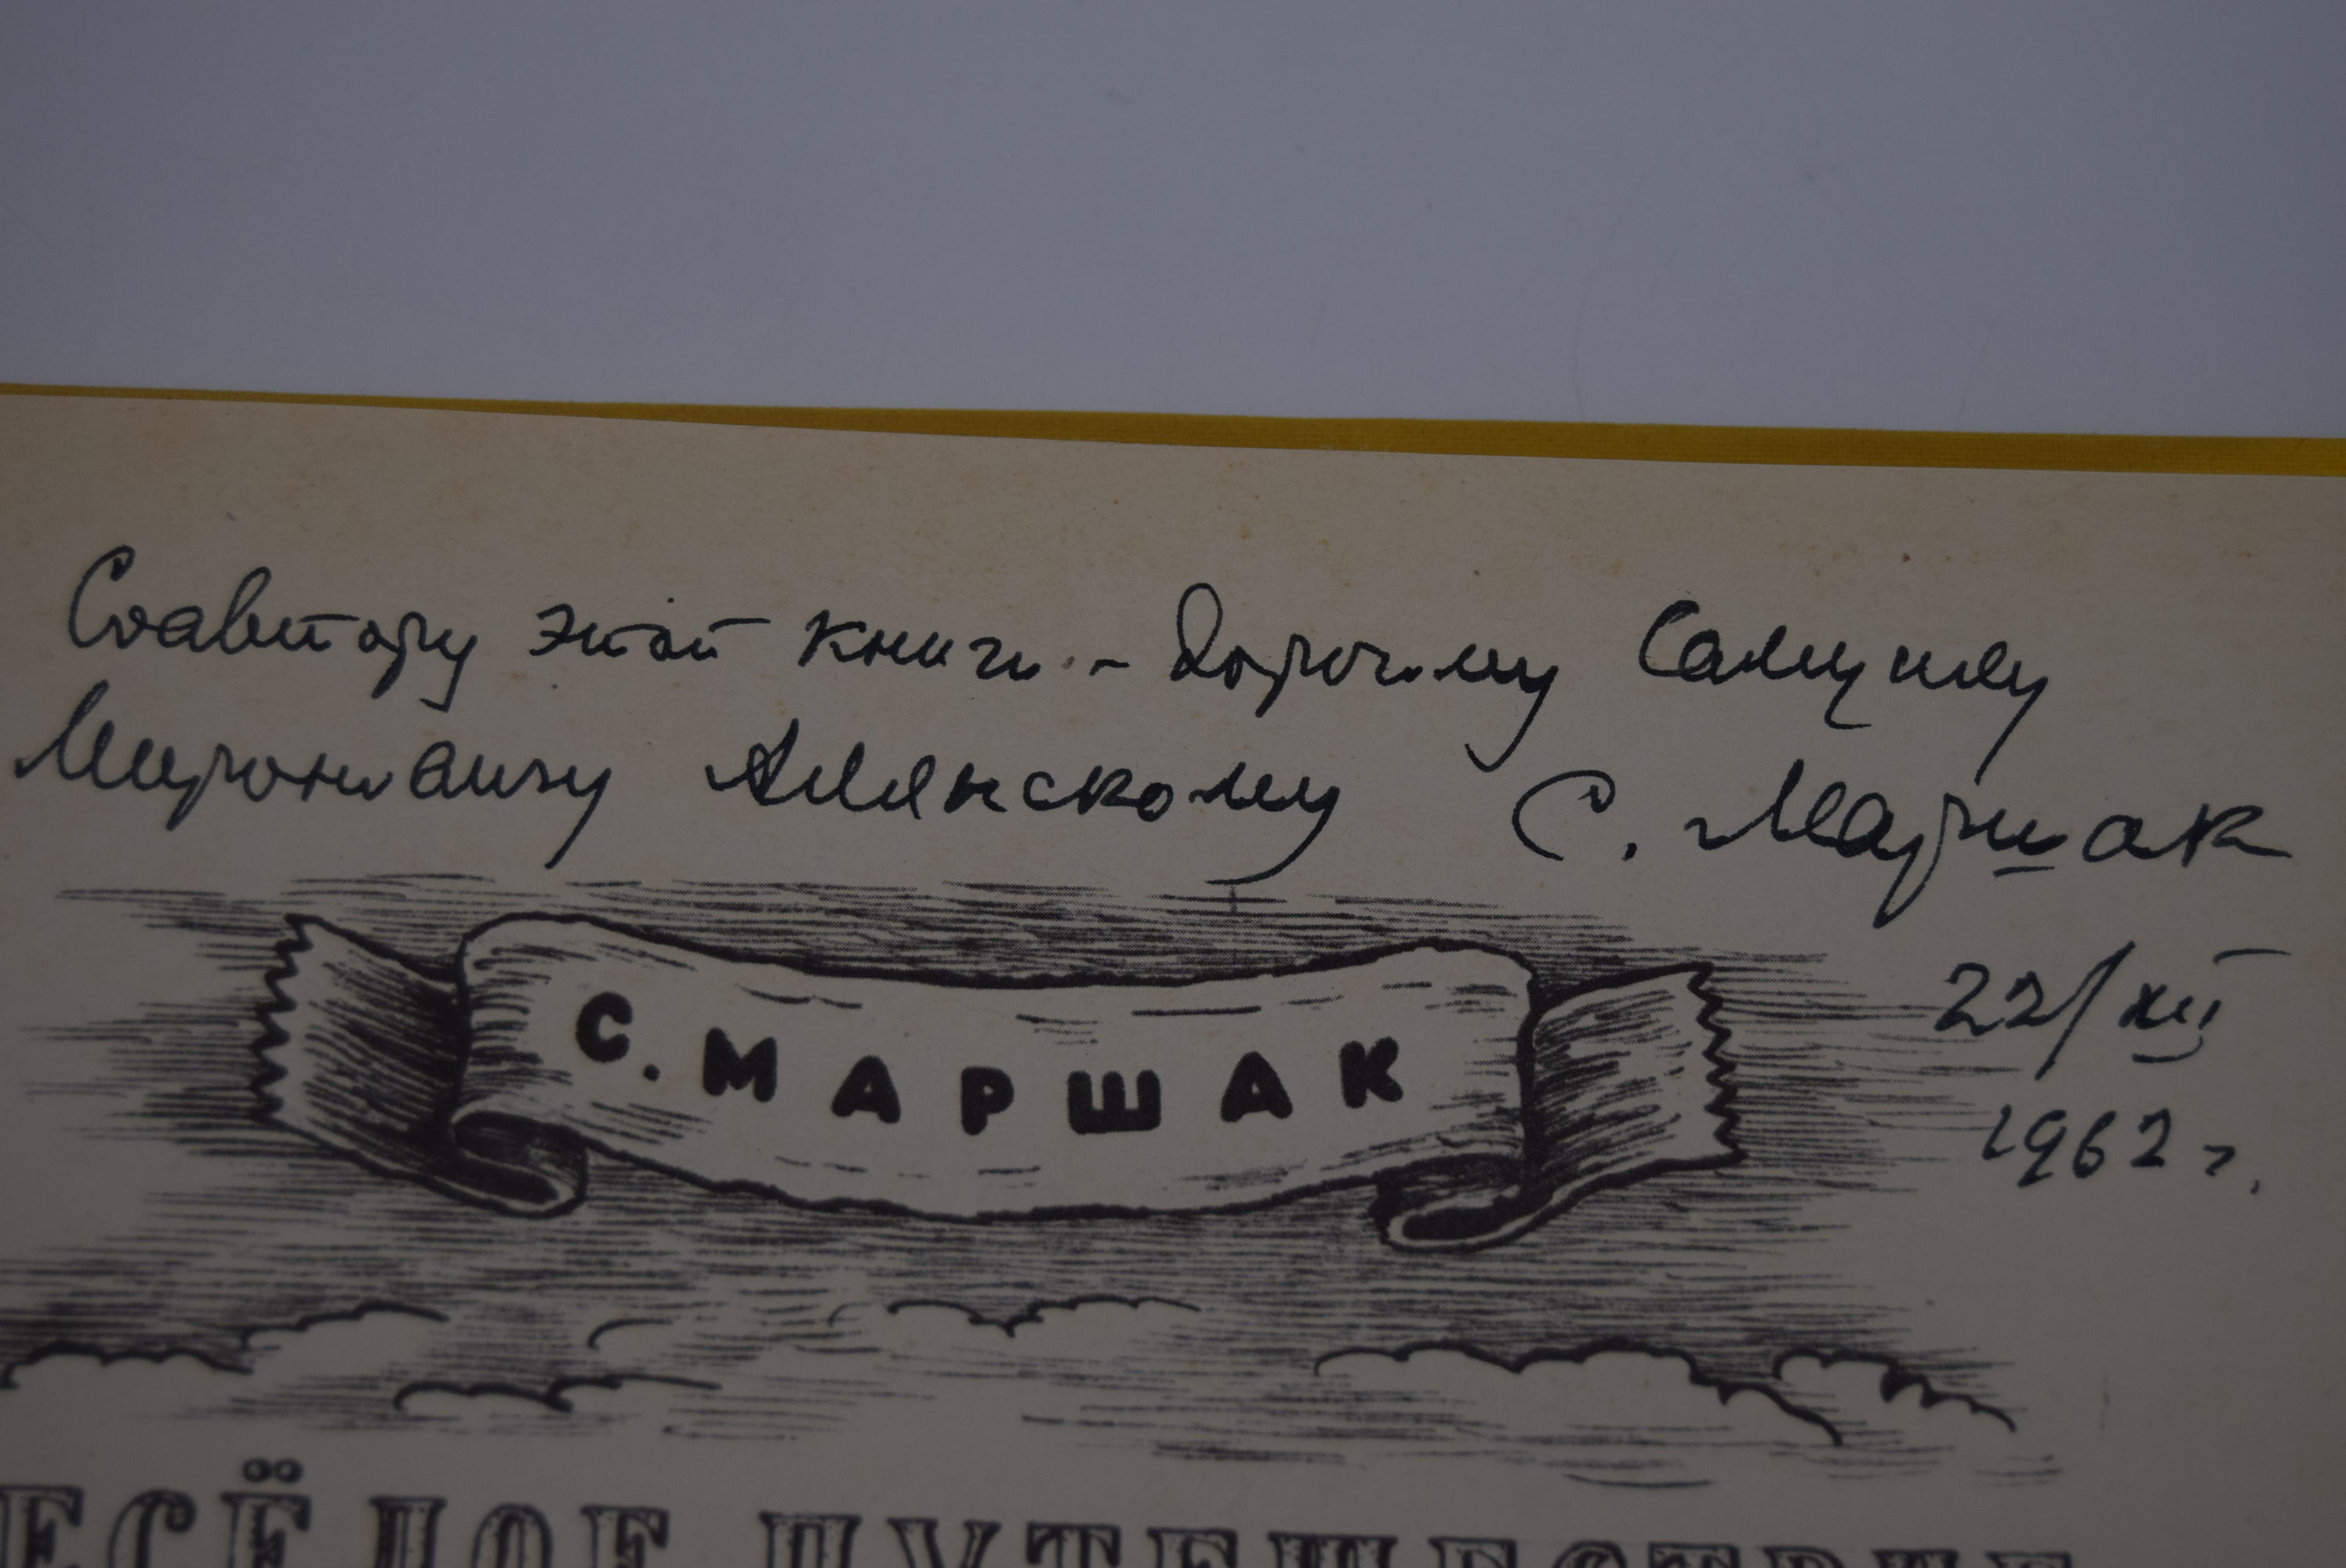 Соавтору этой книги - дорогому Самуилу
Мироновичу Алянскому
С. Маршак
22/XII
1962 г.
С. МАРШАК
ЕСЁЛОЕ ПУТЕШЕСТВИЕ